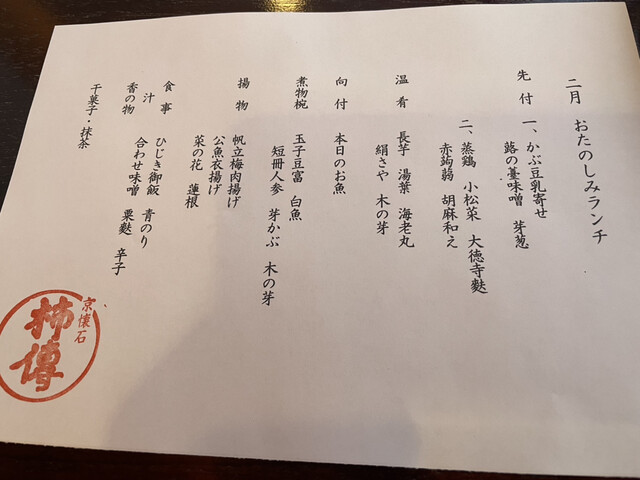 二月 おたのしみランチ
先付 一、かぶ豆乳寄せ
蕗の薹味噌 芽葱
二、蒸鶏 小松菜 大徳寺麩
赤蒟蒻 胡麻和え
温肴 長芋 湯葉 海老丸
絹さや 木の芽
向付 本日のお魚
煮物椀 玉子豆富 白魚
短冊人参 芽かぶ 木の芽
揚物 帆立梅肉揚げ
公魚衣揚げ
菜の花 蓮根
食事 ひじき御飯 青のり
汁 合わせ味噌 粟麩 辛子
香の物
干菓子・抹茶
京懐石
柿傳